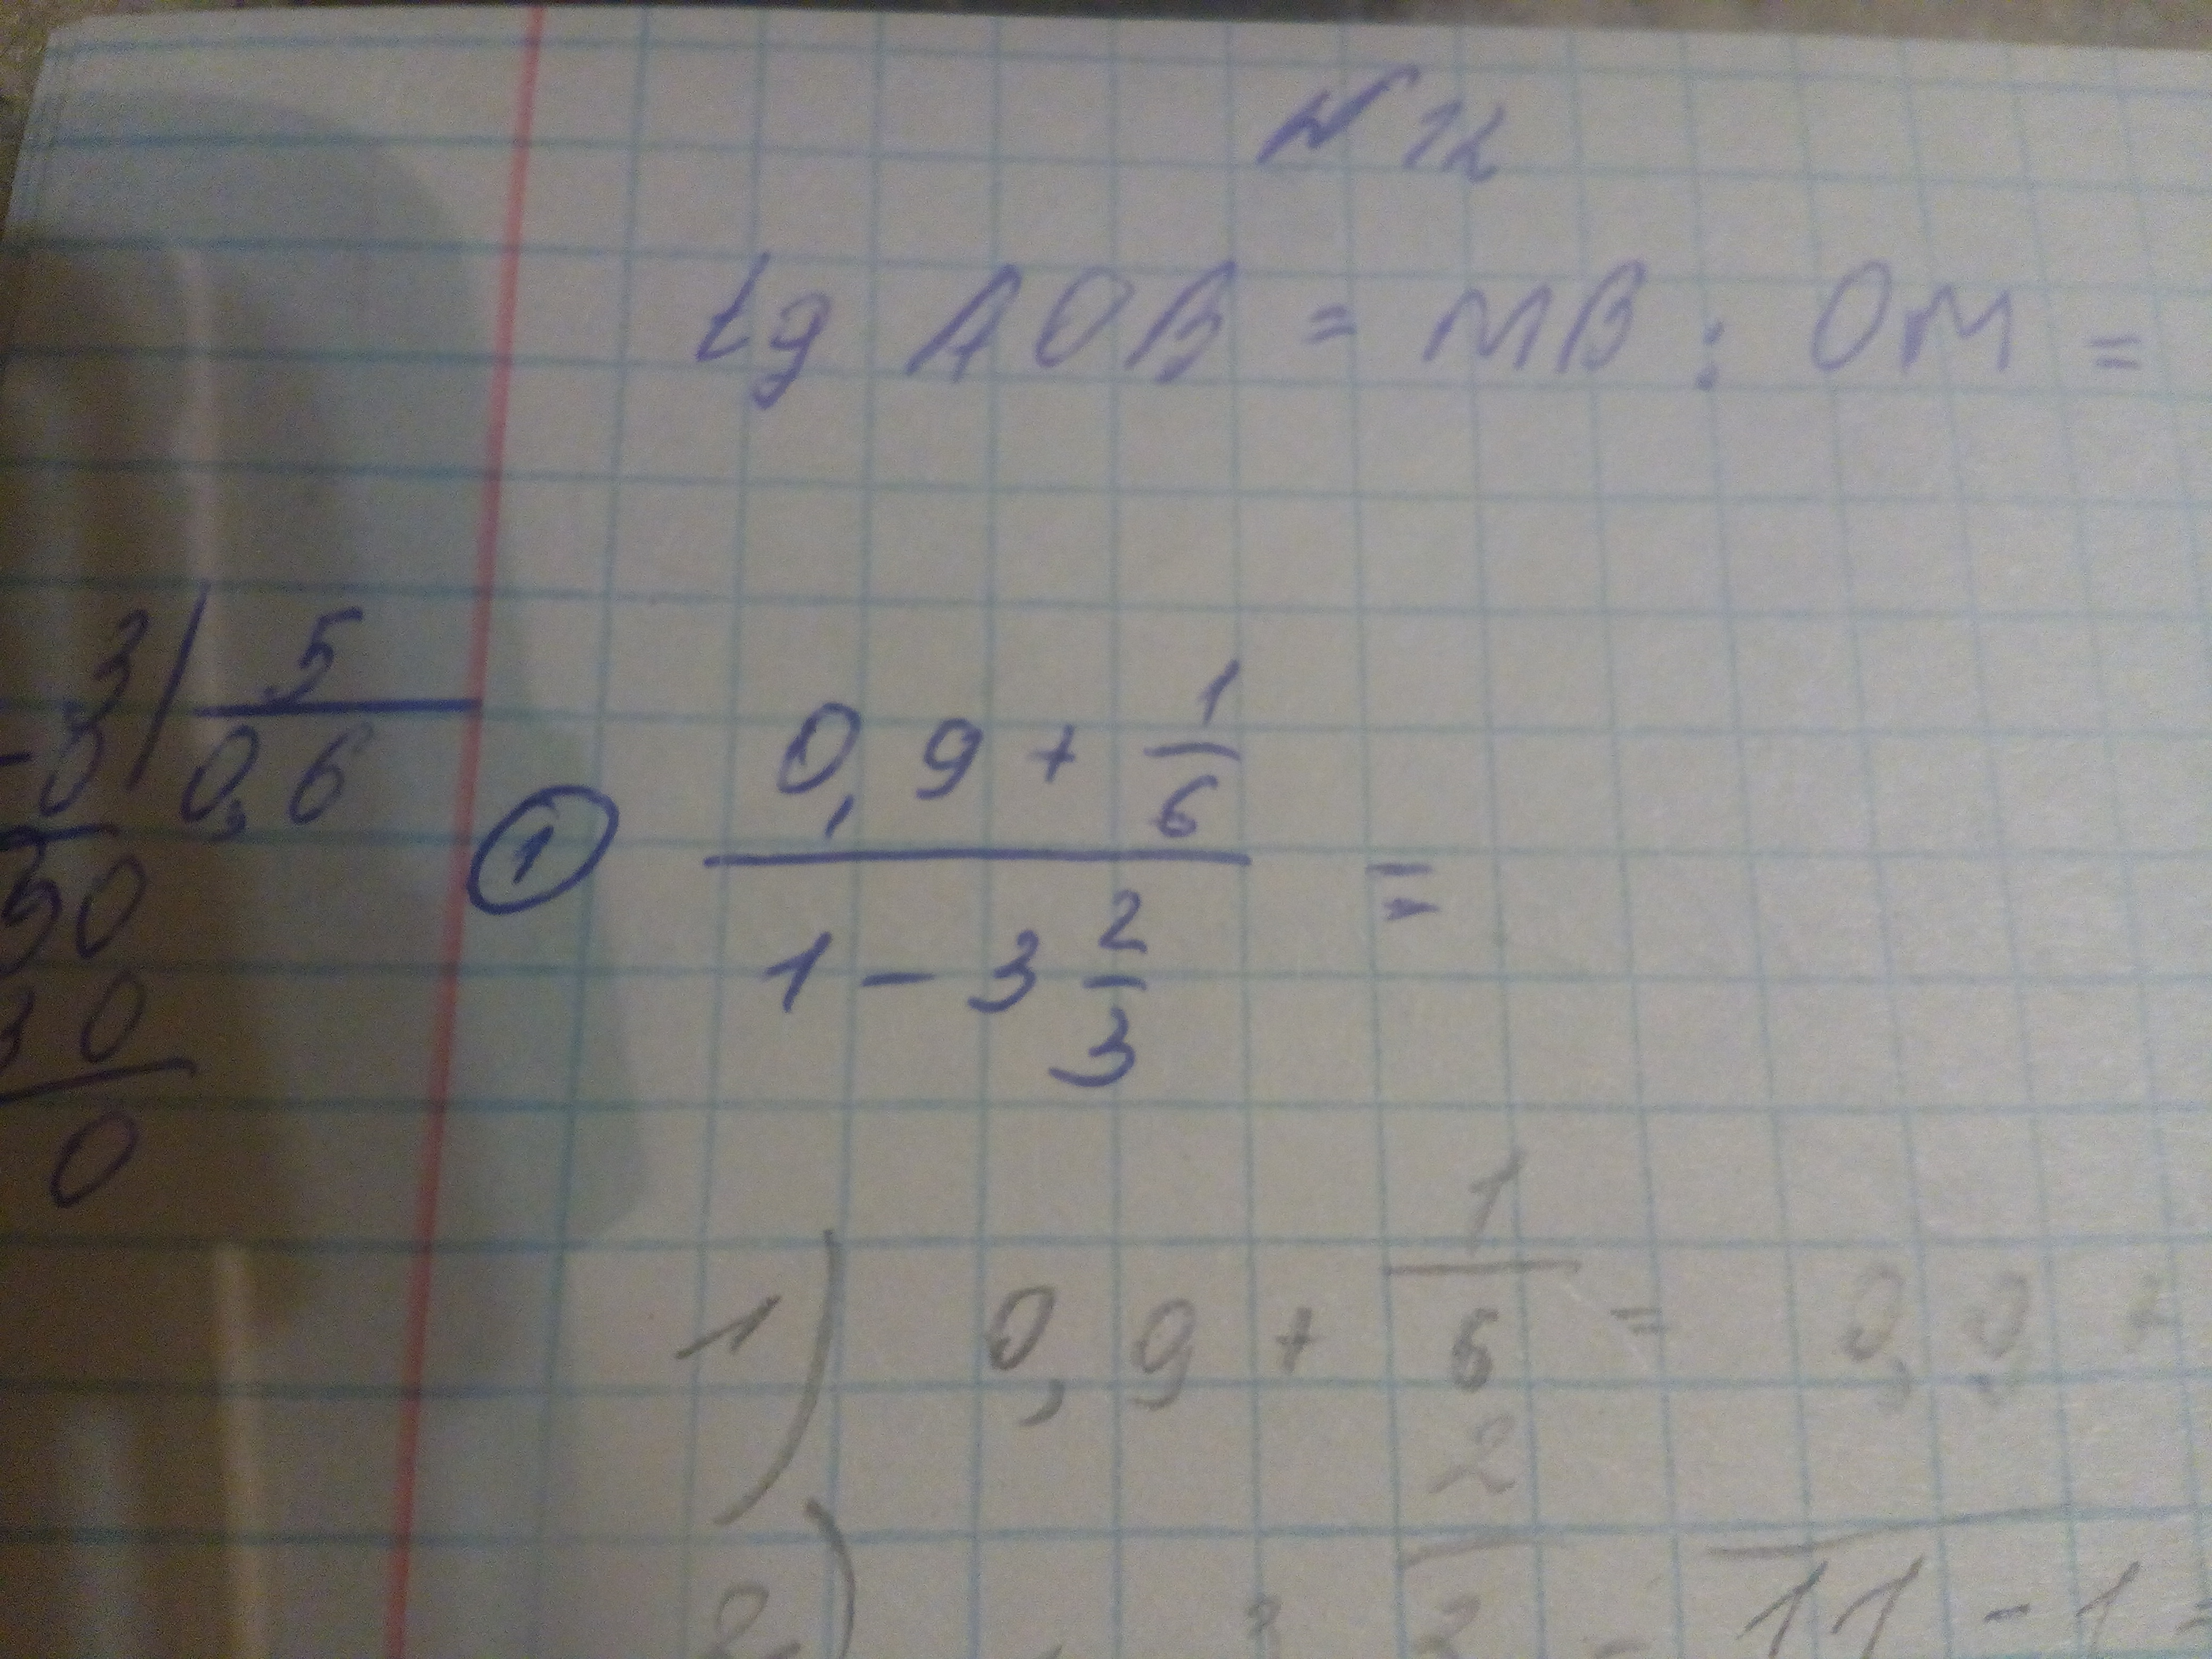 № 12
tg AOB = MB : OM =
3 | 5
-0 | 0,6
30
30
0
① (0,9 + 1/6) / (1 - 3 2/3) =
1) 0,9 + 1/6 = 0,9 +
2) 3 2/3 - 11 - 1 =